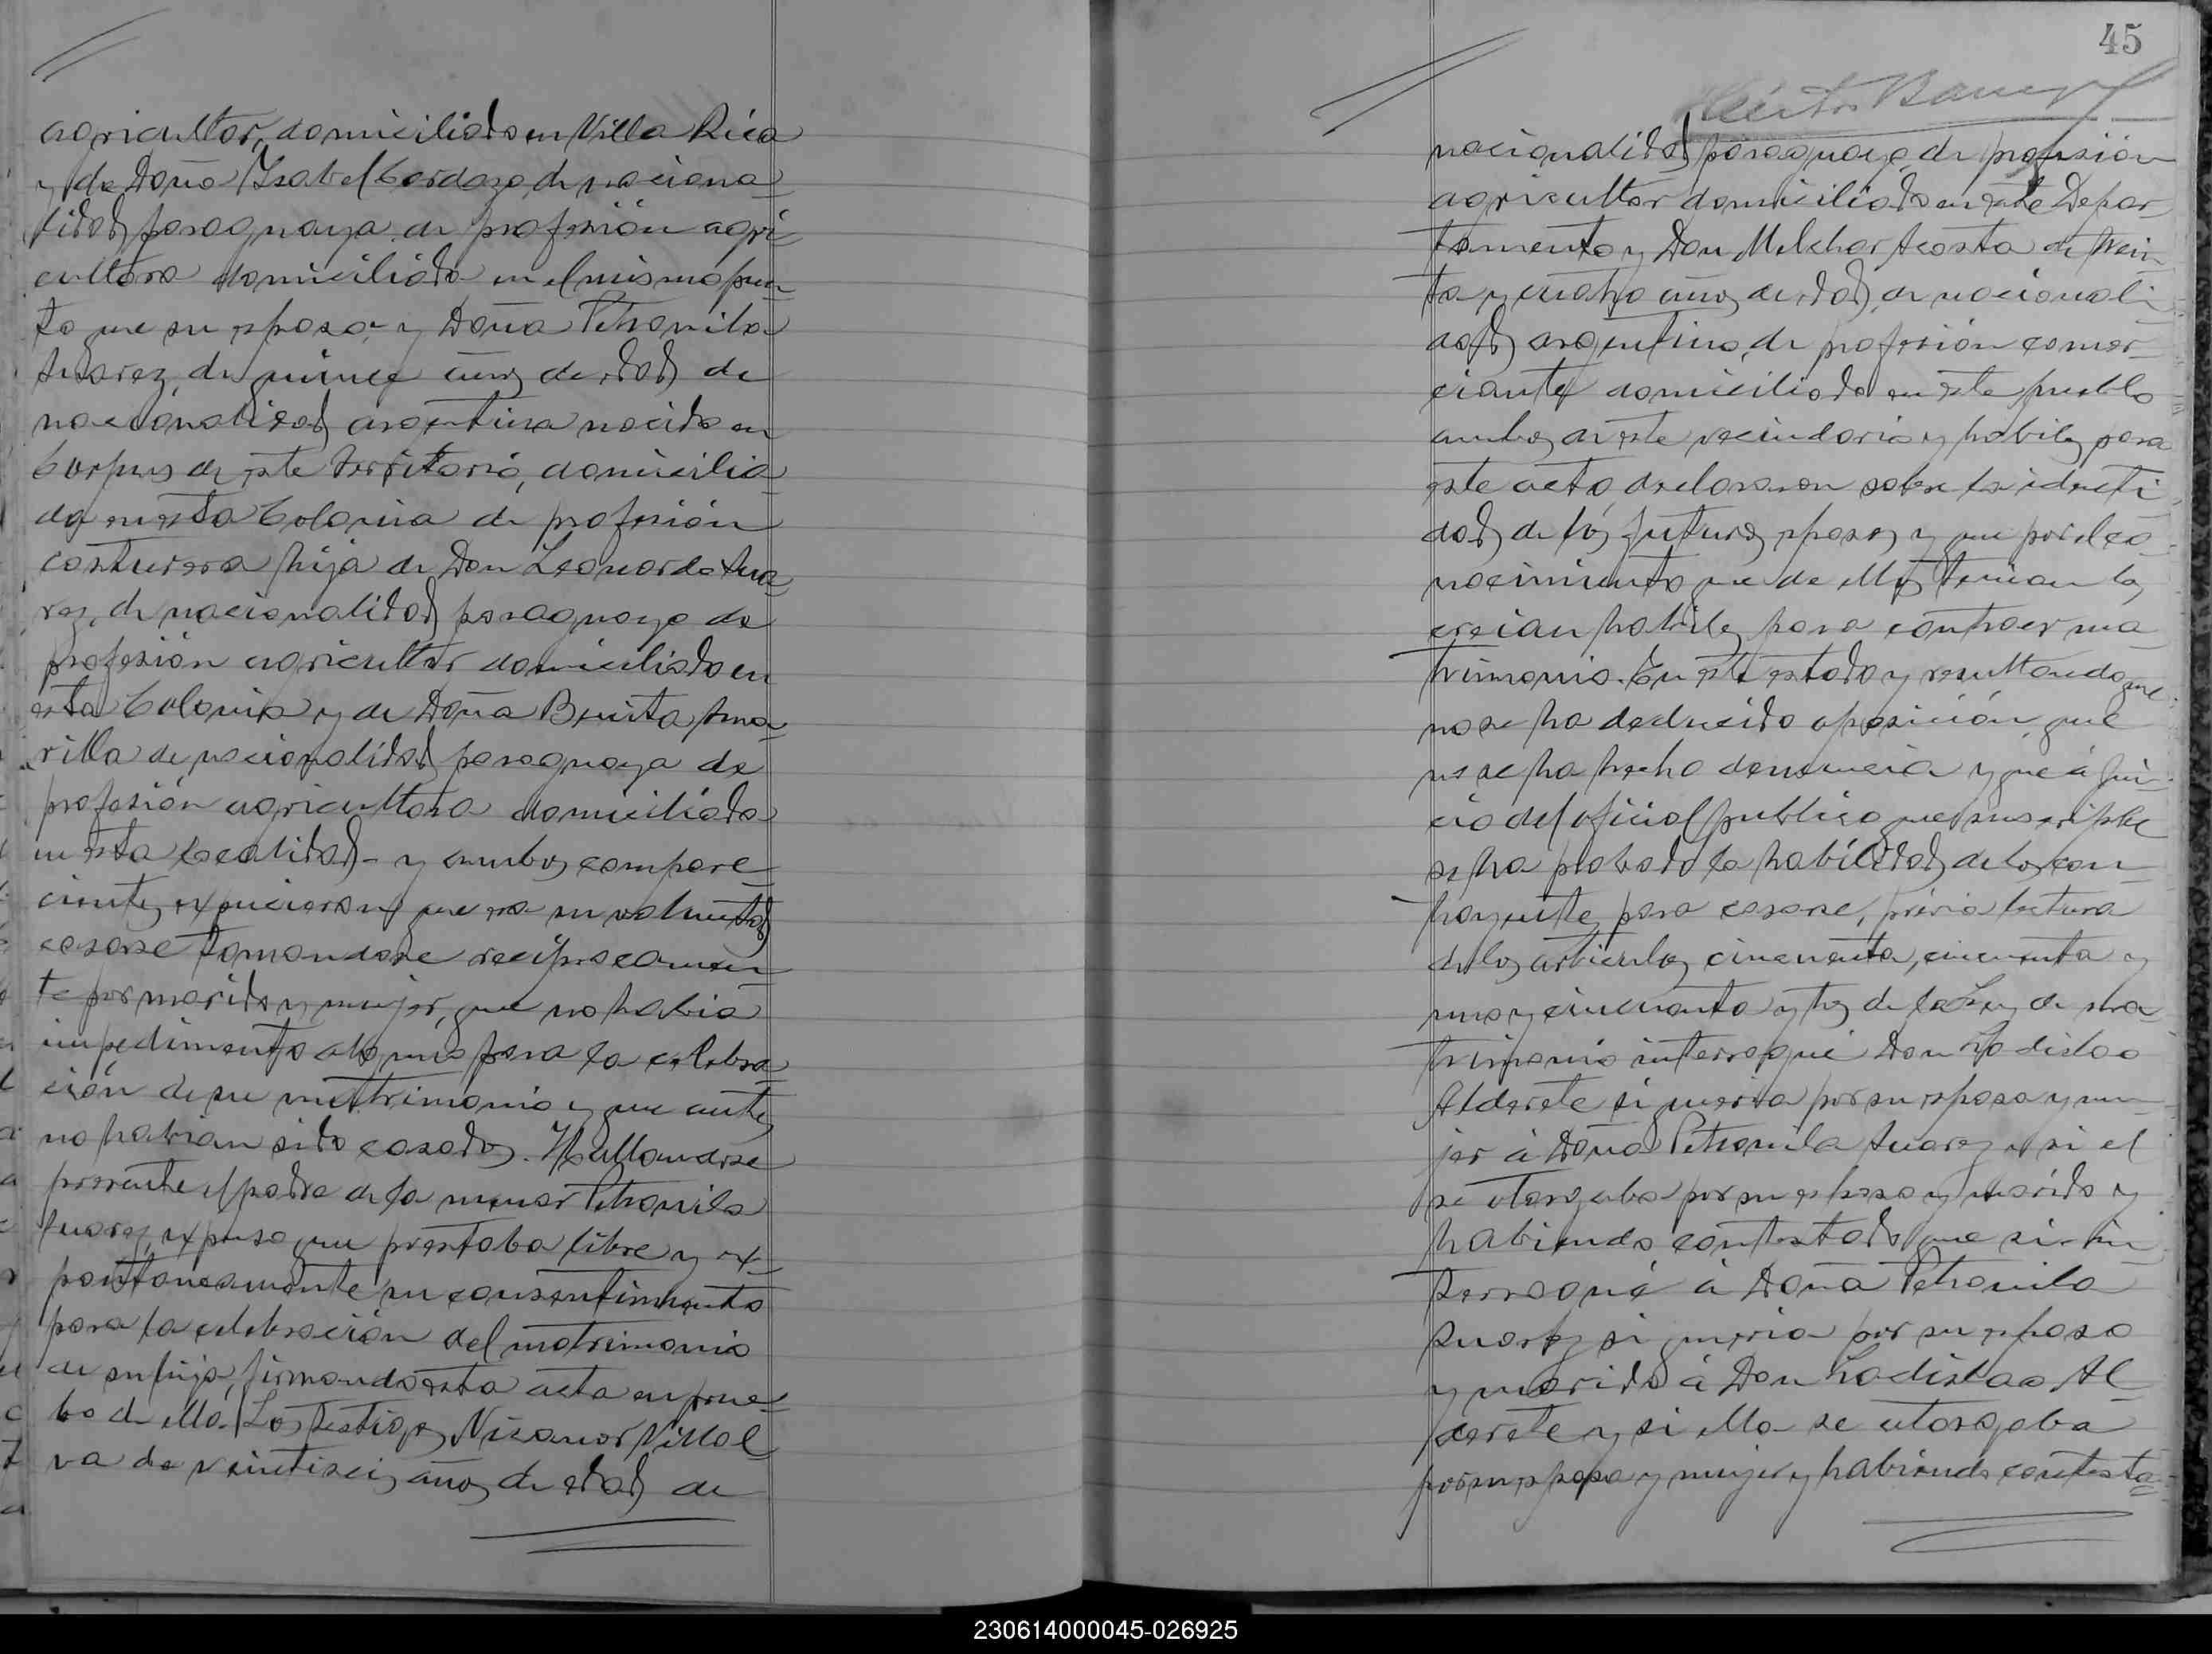 agricultor, domiciliado en Villa Rica
y de Doña Isabel Cardozo, de naciona
lidad paraguaya de profesión agri
cultora domiciliada en el mismo pun
to que su esposo, y Doña Petronila
Suarez, de quince años de edad de
nacionalidad argentina nacida en
Corpus de este territorio, domicilia
da en esta Colonia de profesión
costurera hija de Don Leonardo Sua
rez, de nacionalidad paraguayo de
profesión agricultor domiciliado en
esta Colonia y de Doña Benita Ama
rilla de nacionalidad paraguaya de
profesión agricultora domiciliada
en esta localidad - y ambos compare
cientes expucieron que era su voluntad
casarse tomandose reciprocamen
te por marido y mujer, que no habia
impedimento alguno para la celebra
ción de su matrimonio y que antes
no habian sido casados. Hallandose
presente el padre de la menor Petronila
Suarez, expuso que prestaba libre y ex
pontaneamente su consentimiento
para la celebración del matrimonio
de su hija, firmando esta acta en prue
ba de ello. Los testigos Nicanor Villal
va de veintiseis años de edad de
45
nacionalidad paraguayo de profesión
agricultor domiciliado en este Depar
tamento y Don Melchor Acosta de trein
ta y cuatro años de edad, de nacionali
dad argentino, de profesión comer
ciante domiciliado en este pueblo
ambos de este vecindario y habiles para
este acto, declararon sobre la identi
dad de los futuros esposos y que por el co
nocimiento que de ellos tenian los
creian habiles para contraer ma
trimonio. En este estado y resultando que
no se ha deducido oposición, que
no se ha hecho denuncia y que á jui
cio del oficial publico que suscribe
se ha probado la habilidad de los con
trayentes para casarse, previa lectura
de los articulos cincuenta, cincuenta y
uno y cincuenta y tres de la Ley de ma
trimonio interrogué Don Ladislao
Alderete si queria por su esposa y mu
jer á Doña Petronila Suarez y si el
se otorgaba por su esposo y marido y
habiendo contestado que si in
terrogué á Doña Petronila
Suarez si queria por su esposo
y marido á Don Ladislao Al
derete y si ella se otorgaba
por su esposa y mujer y habiendo contesta
230614000045-026925